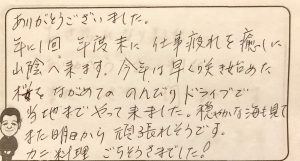 ありがとうございました。
年に1回 年度末に 仕事疲れを 癒しに
山陰へ来ます。今年は早く咲き始めた
桜を ながめての のんびりドライブで
当地まで やって来ました。穏やかな海も見て
また明日から 頑張れそうです。
カニ料理 ごちそうさまでした!